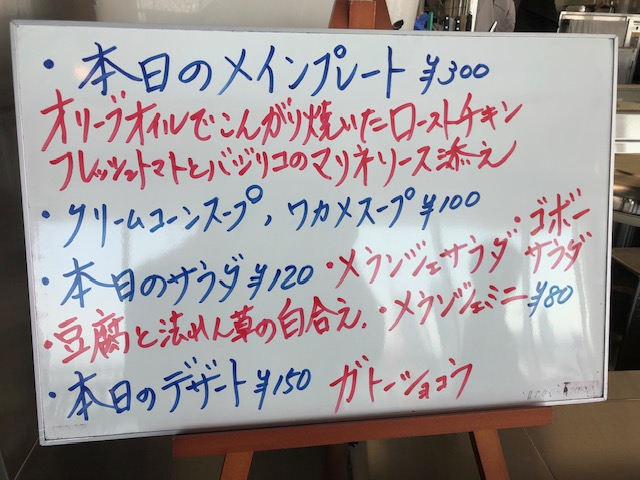 ・本日のメインプレート ¥300
オリーブオイルでこんがり焼いたローストチキン
フレッシュトマトとバジリコのマリネソース添え
・クリームコーンスープ, ワカメスープ ¥100
・本日のサラダ ¥120 ・メランジェサラダ ・ゴボーサラダ
・豆腐と法れん草の白合え. ・メランジェミニ ¥80
・本日のデザート ¥150 ガトーショコラ